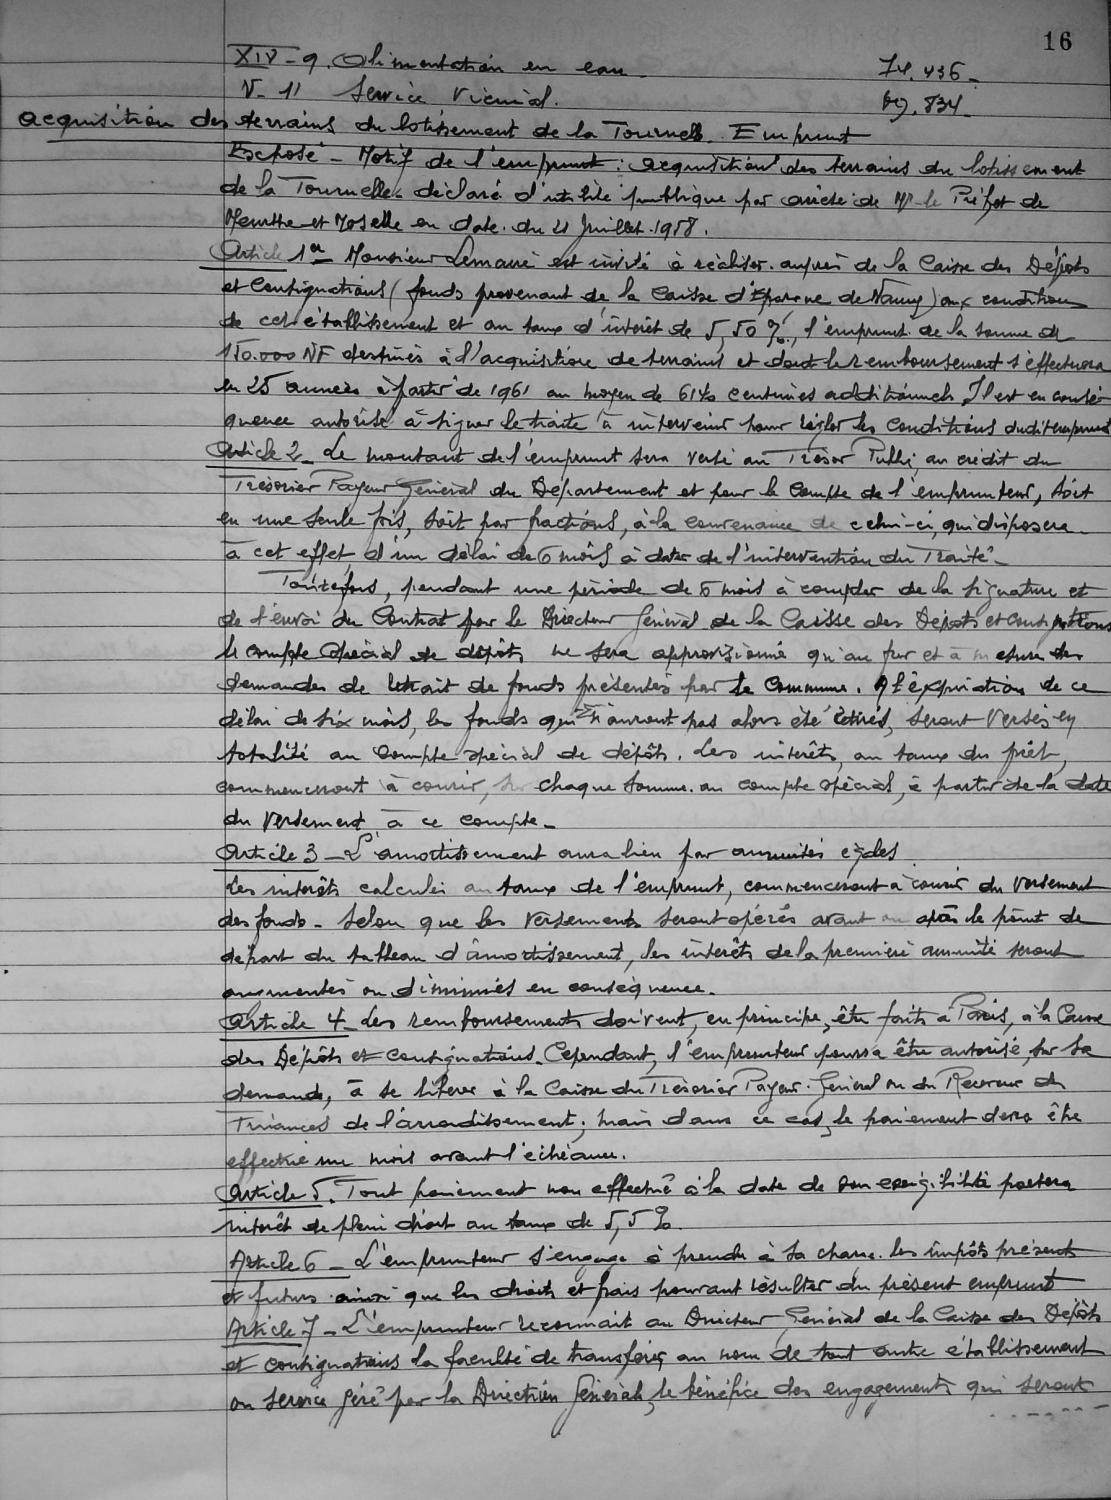 16
XIV - 9. Alimentation en eau - 74.436 -
V - 11 Service Vicinal. 69.834 -
acquisition des terrains du lotissement de la Tournelle. Emprunt
Exposé - Motif de l'emprunt : acquisition des terrains du lotissement
de la Tournelle - déclaré d'utilité publique par arrêté de Mr le Préfet de
Meurthe et Moselle en date du 21 Juillet 1958.
Article 1er Monsieur Lemaire est invité à réaliser auprès de la Caisse des Dépôts
et Consignations (fonds provenant de la Caisse d'Epargne de Nancy) aux conditions
de cet établissement et au taux d'intérêt de 5,50 %, l'emprunt de la somme de
150.000 NF destinés à l'acquisition de terrains et dont le remboursement s'effectuera
en 25 années à partir de 1961 au moyen de centimes additionnels. Il est en consé
quence autorisé à signer le traité à intervenir pour régler les conditions dudit emprunt
Article 2 - Le montant de l'emprunt sera versé au Trésor Public, au crédit du
Trésorier Payeur Général du Département et pour le Compte de l'emprunteur, soit
en une seule fois, soit par fractions, à la convenance de celui-ci, qui disposera
à cet effet d'un délai de 6 mois à dater de l'intervention du Traité -
Toutefois, pendant une période de 6 mois à compter de la signature et
de l'envoi du Contrat par le Directeur Général de la Caisse des Dépôts et Consignations
le compte spécial de dépôts ne sera approvisionné qu'au fur et à mesure des
demandes de retrait de fonds présentés par la Commune. A l'expiration de ce
délai de six mois, les fonds qui n'auront pas alors été retirés, seront versés en
totalité au Compte spécial de dépôts. Les intérêts, au taux du prêt,
commenceront à courir, sur chaque somme au compte spécial, à partir de la date
du versement à ce compte -
Article 3 - L'amortissement aura lieu par annuités égales
Les intérêts calculés au taux de l'emprunt, commenceront à courir du versement
des fonds - Selon que les versements seront opérés avant ou après le point de
départ du tableau d'amortissement, les intérêts de la première annuité seront
augmentés ou diminués en conséquence.
Article 4 - Les remboursements doivent, en principe, être faits à Paris, à la Caisse
des Dépôts et Consignations. Cependant, l'emprunteur pourra être autorisé, sur sa
demande, à se libérer à la Caisse du Trésorier Payeur Général ou du Receveur des
Finances de l'arrondissement ; mais dans ce cas, le paiement devra être
effectué un mois avant l'échéance.
Article 5. Tout paiement non effectué à la date de son exigibilité portera
intérêt de plein droit au taux de 5,5 %
Article 6 - L'emprunteur s'engage à prendre à sa charge les impôts présents
et futurs ainsi que les droits et frais pouvant résulter du présent emprunt
Article 7 - L'emprunteur reconnait au Directeur Général de la Caisse des Dépôts
et consignations la faculté de transférer au nom de tout autre établissement
ou service géré par la Direction Générale, le bénéfice des engagements qui seront